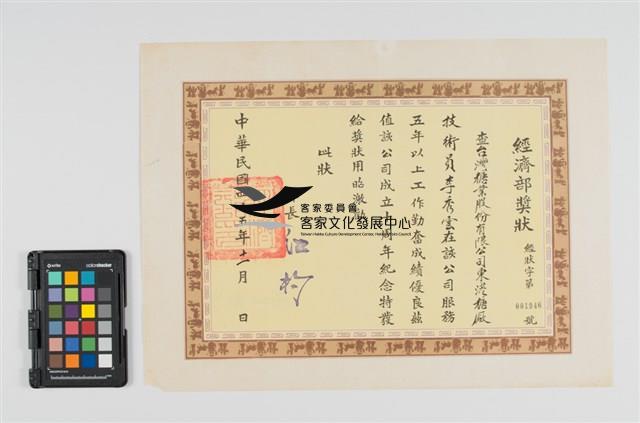 經濟部獎狀
經狀字第001946號
查台灣糖業股份有限公司東港糖廠
技術員李秀雲在該公司服務
五年以上工作勤奮成績優良茲
值該公司成立十周年紀念特發
給獎狀用昭激勵
此狀
長 江杓
中華民國四十五年十二月 日
客家委員會
客家文化發展中心
Taiwan Hakka Culture Development Center, Hakka Affairs Council
x-rite
colorchecker